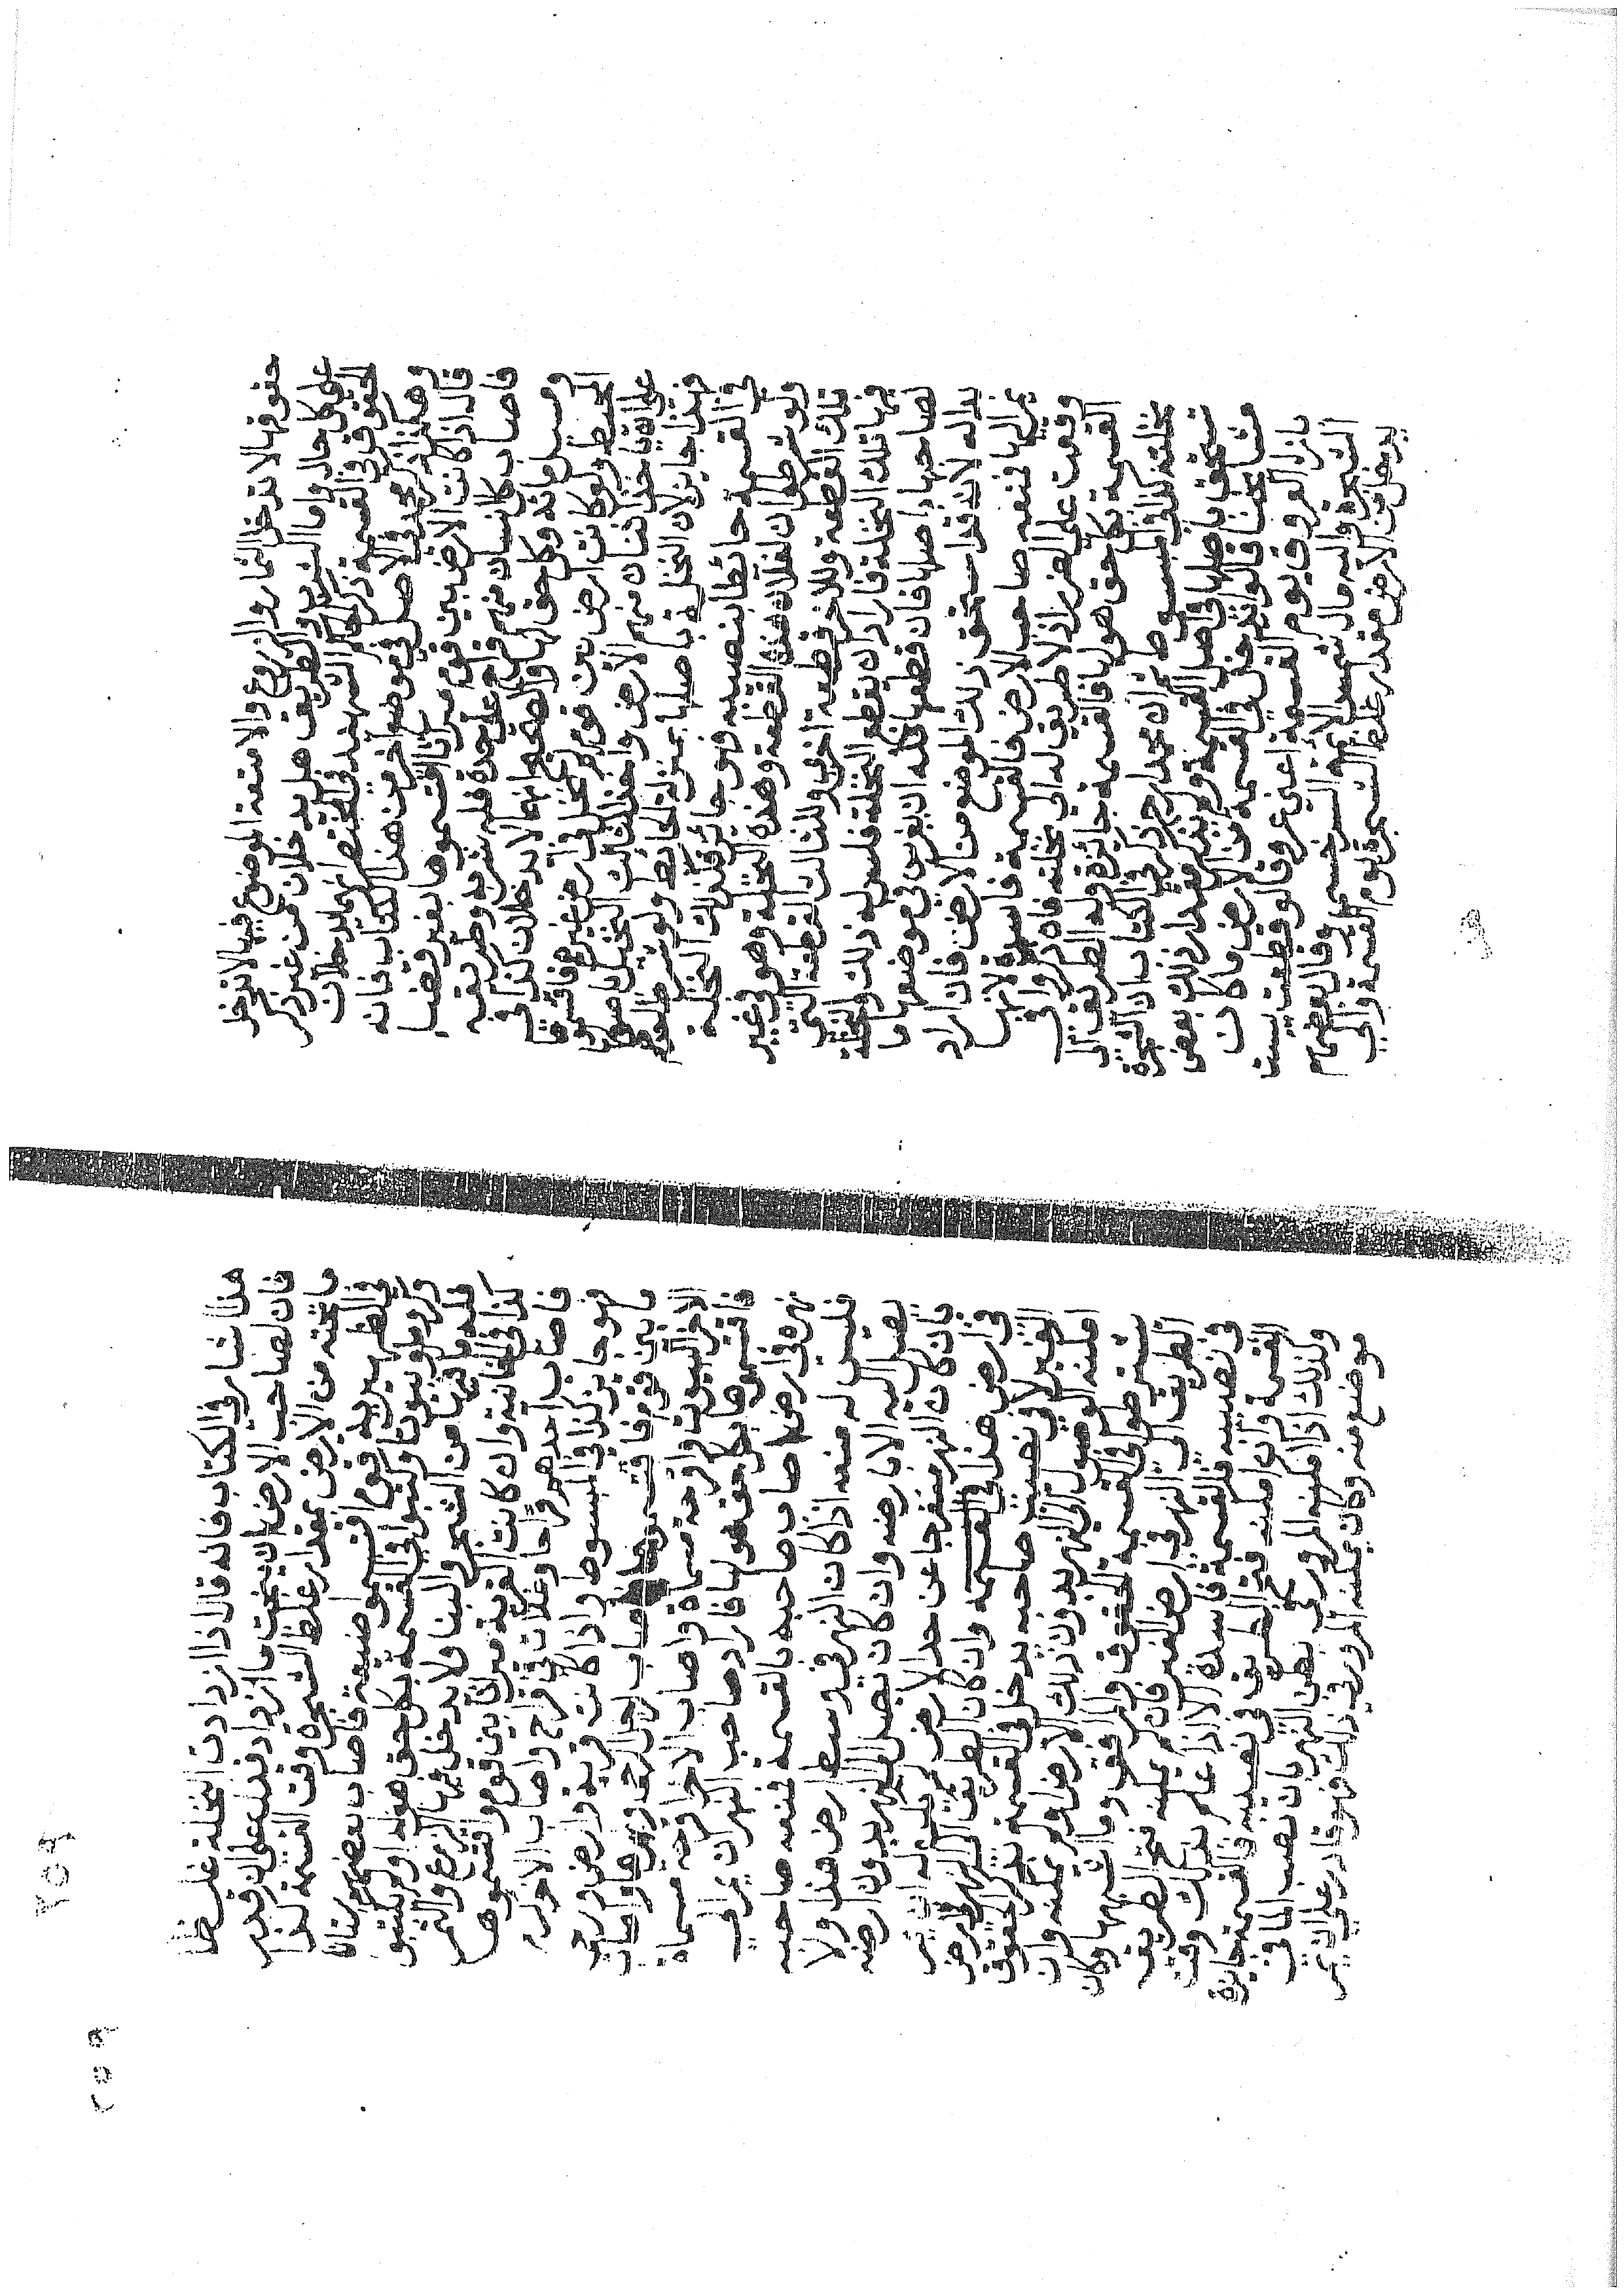 حقوقها لا تدخل الثمار والزروع والامتعة الموضوع فيها لا تدخل
على كل حال واما الشرب والطريق هل يدخلان من غير ذكر
الحقوق في القسمة ذكر الحاكم الشهيد في المختصر انهما يدخلان
وهكذا ذكر محمد في الاصل في موضع اخر من هذا الكتاب فانه
قال اذا كانت الارض بين قوم ميراثا اقتسموها بغير قضا
فاصاب كل انسان منهم قراح على حدة فله شربه وطريقه
ومسيل مائه وكل حق لها والصحيح انهما لا يدخلان كذا في
المحيط ولو كانت ارض بين قوم ولهم نخل في ارض غيرها فاقتسموا
على ان ياخذ اثنان منهم الارض واخذ الثالث النخل باصولها
فهذا جايز لان النخلة باصلها بمنزلة الحايط ولو شرط لهم
في القسمة حائطا بنصيبه فهو جائز فكذلك النخلة
ولو شرطوا ان لفلان هذه القطعة وهذه النخلة وهو في غير
تلك القطعة وللاخر قطعة اخرى وللثالث القطعة التي
فيها تلك النخلة فاراد ان يقطع النخلة فليس له ذلك والنخلة
لصاحبها باصلها فان قطعها فله ان يغرس في موضعها ما
بدا له لانه قد استحق ذلك الموضع من الارض فان اراد
يمر اليها فمنعه صاحب الارض فالقسمة فاسدة لانها
وقعت على الضرر اذ لا طريق له الى نخلته فان ذكروا في
القسمة بكل حق هو لها فالقسمة جايزة وله الطريق الى
نخلته كذا في المبسوط ثم ان محمدا رح ذكر في الكتاب ان الشجرة
تستحق باصلها في اصل القسمة ولم يذكر مقدار ذلك بعض
مشايخنا قالوا يدخل في القسمة من الارض ما كان
بازا العروق يوم القسمة اعني عروقا لو قطعت يبست
الشجرة واليه مال شمس الائمة السرخسي وقال بعضهم
يدخل من الارض مقدار غلظ الشجرة يوم القسمة والى
هذا اشار في الكتاب فانه قال اذا ازدادت النخلة غلظا
فان لصاحب الارض ان ينحت ما ازداد فدل على ان قدر
ما تحته من الارض بمقدار غلظ الشجرة وقت القسمة كذا
في الظهيرية قوم اقتسموا ضيعة فاصاب بعضهم بستانا
وكروما وبيوتا وكتبوا في القسمة بكل حق هو له او لم يكتبوا
فله ما فيها من الشجر والبنا ولا يدخل فيها الزرع والثمر
كذا في الخانية وان كانت القرية ميراثا بين قوم واقتسموها
فاصاب احدهم قراحا وغلات في قراح واصاب الاخر
فهو جايز كذا في المبسوط واذا كانت قرية وارض ورحى
ما بين قوم فاقتسموها فاصاب احدا الرحى ونهرها واصاب
الاخر البيوت واقرحة مسماة واصاب الاخر اقرحة مسماة
فاقتسموها بكل حق هو لها فاراد صاحب النهر ان يمر الى
نهره في ارض صاحبه بالقسمة فمنعه صاحبه
فليس له منعه اذا كان النهر في وسط ارض هذا ولا
يصل اليه الا بارضه وان كان يصل الى النهر بدون ارضه
بان كان النهر منفرجا عن حد الارض لم يكن له ان يمر
في ارض هذا في القسمة وان كان الطريق الى النهر في ارض
الغير لا في نصيب صاحبه يدخل في القسمة بذكر الحقوق
امكنه الوصول الى النهر بدون ذلك الارض او لم يمكنه وان
شرطوا في القسمة الحقوق والمرافق وما اشبهها وكان
الطريق الى النهر في ارض الغير فان لم يمكنه فتح الطريق
في نصيبه فالقسمة فاسدة الا اذا علم بذلك وقت
القسمة وان امكنه فتح الطريق في نصيبه فالقسمة جايزة
وكذلك اذا امكنه المرور في بطن النهر بان نضب الما في
موضع منه وكان يمكنه المرور في ذلك فهو قادر على ان يمر
٢٥٩